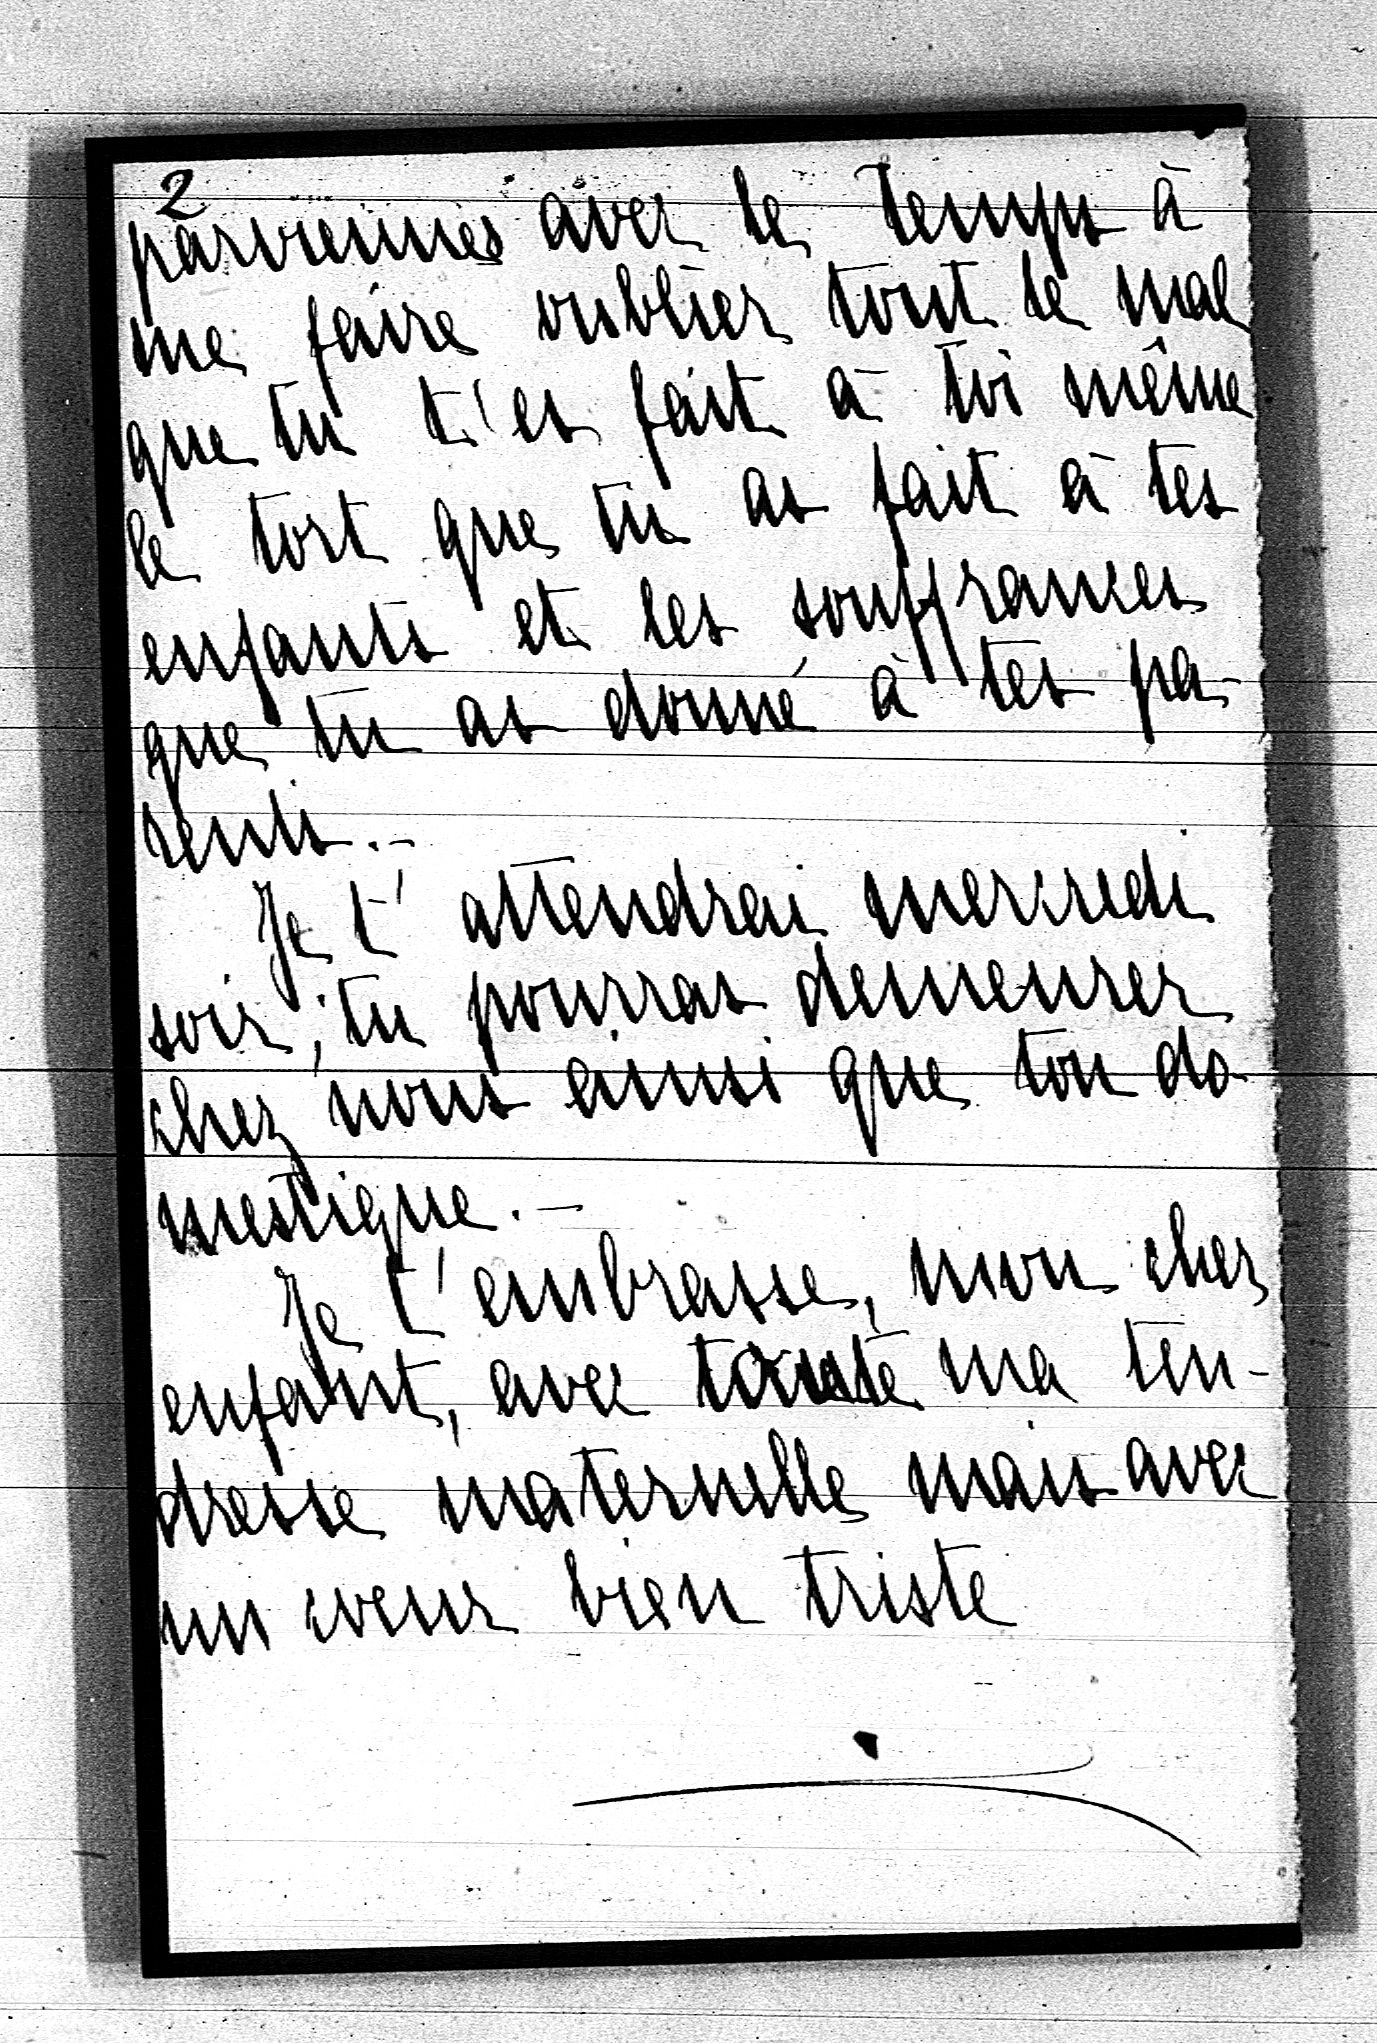 2
parviennes avec le temps à
me faire oublier tout le mal
que tu t'es fait à toi même
le tort que tu as fait à tes
enfants et les souffrances
que tu as donné à tes pa-
rents.-
Je t'attendrai mercredi
soir, tu pourras demeurer
chez nous ainsi que ton do-
mestique.-
Je t'embrasse, mon cher
enfant, avec toute ma ten-
dresse maternelle mais avec
un coeur bien triste